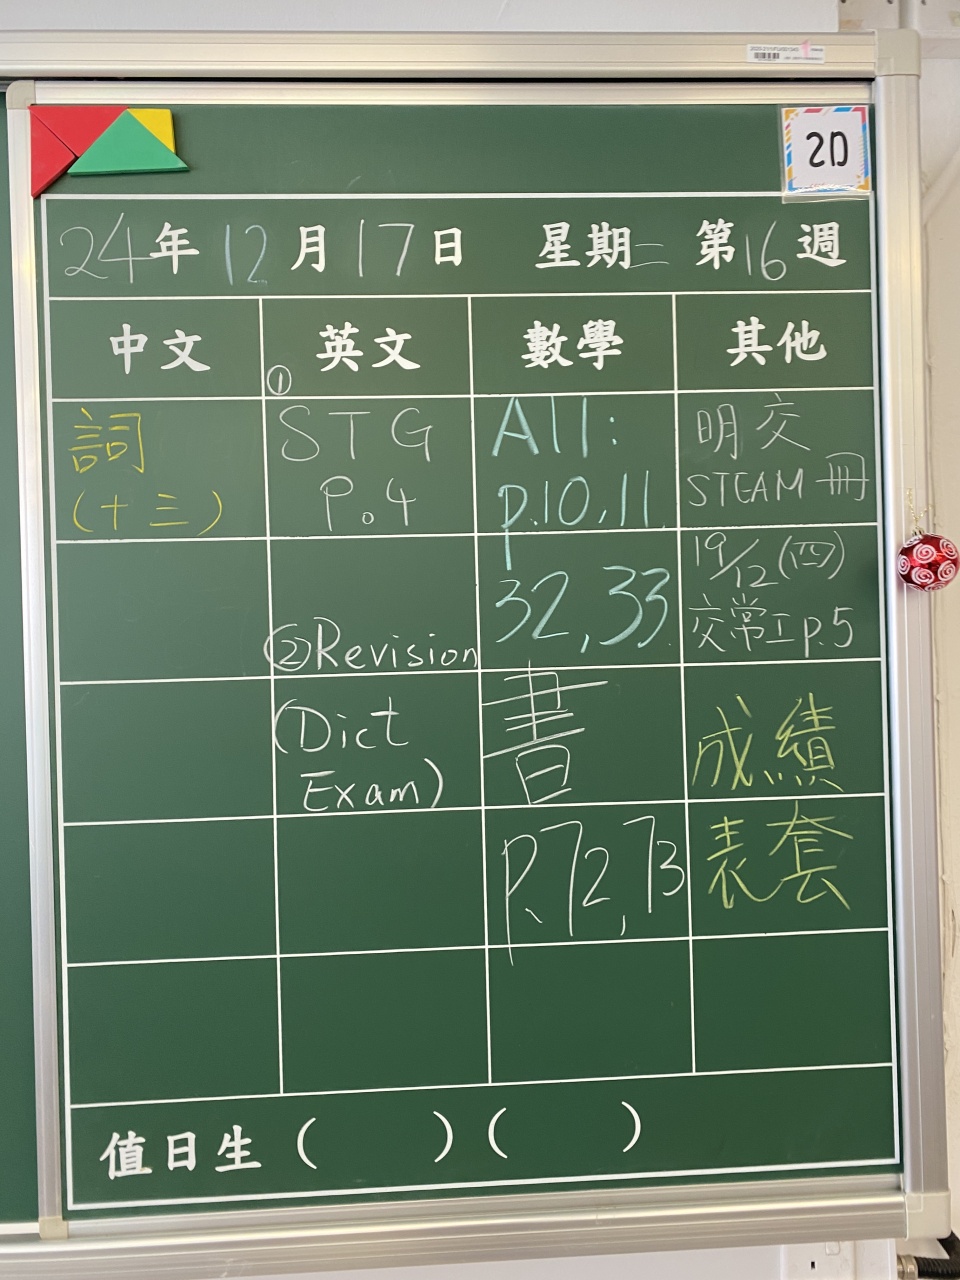 2D
24年 12月17日 星期二 第16週
中文 英文 數學 其他
詞
(十三)
① STG
P.4
② Revision
(Dict
Exam)
All:
p.10,11
32,33
書
p.72,73
明交
STEAM冊
19/12(四)
交常工p.5
成績
表套
值日生 ( ) ( )